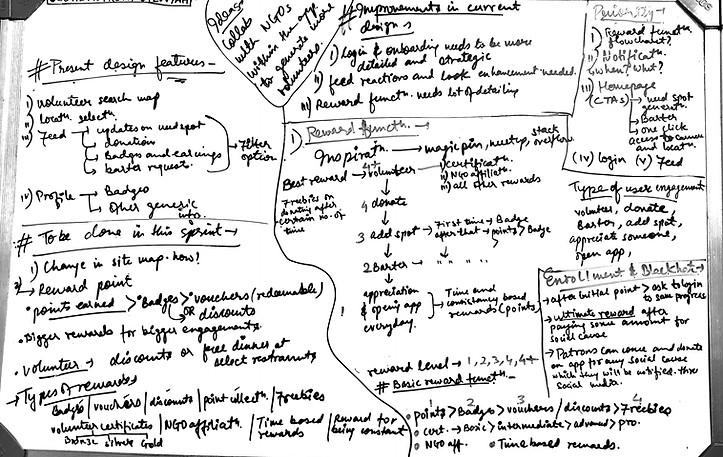 # Present design features -
i) Volunteer search map
ii) locatn. selectn.
iii) Feed → updates on needspot
→ donation
→ Badges and earnings
→ barter request.
→ Filter option
iv) Profile → Badges
→ Other generic info.
# To be done in this sprint →
1) Change in site map. how?
2) → Reward point
• points earned > Badges > vouchers (redeemable)
OR discounts
• Bigger rewards for bigger engagements.
• Volunteer → discounts or free dinner at select restraunts
→ Types of rewards
Badges / vouchers / discounts / point collectn. / Freebies
volunteer certificates / NGO affiliatn. / Time based rewards / Reward for being constant
Bronze Silver Gold
Ideas
Collab
with NGOs
within the app
to generate more
volunteers
# Improvements in current design
i) Login & onboarding needs to be more detailed and strategic
ii) feed reactions and look enhancement needed.
iii) Reward functn. needs lot of detailing
1) Reward functn. →
Inspiratn. → magic pin, meetup, stack overflow
Best reward → 4+ volunteer → i) certificatn.
ii) NGO affiliatn.
iii) all other rewards
Freebies on donating after certain no. of time
4 donate
3 add spot → First time → Badge
after that → points > Badge
2 Barter → " " "
1 appreciation & opening app everyday.
Time and consistency based rewards (points)
reward level → 1, 2, 3, 4, 4+
# Basic reward functn. -
1 2 3 4
• points > Badge > vouchers / discounts > Freebies
• cert. → Basic > intermediate > advanced > pro.
• NGO aff. • Time based rewards.
Priority -
i) Reward functn. flowchart?
ii) Notificatn. when? what?
iii) Homepage (CTAs) → need spot generatn.
→ Barter
→ one click access to
and locatn.
(iv) login (v) Feed
Type of user engagement
volunteer, donate
Barter, add spot,
appreciate someone,
open app,
Enrollment &
→ after initial point > ask to login to save progress
→ ultimate reward after paying some amount for social cause
→ Patrons can come and donate on app for any social cause which they will be notified. thru social media.